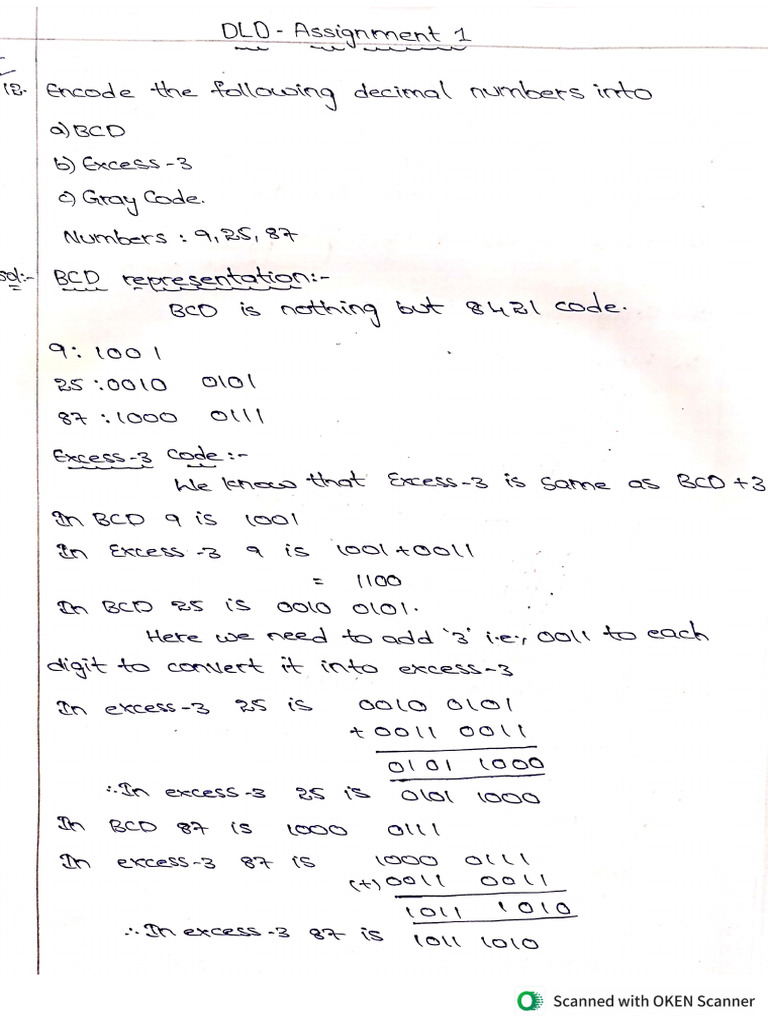 DLD - Assignment 1
12. Encode the following decimal numbers into
a) BCD
b) Excess-3
c) Gray Code.
Numbers : 9, 25, 87
sol:- BCD representation:-
BCD is nothing but 8421 code.
9: 1001
25 : 0010 0101
87 : 1000 0111
Excess-3 Code:-
We know that Excess-3 is same as BCD + 3
In BCD 9 is 1001
In Excess-3 9 is 1001+0011
= 1100
In BCD 25 is 0010 0101.
Here we need to add '3' i.e., 0011 to each
digit to convert it into excess-3
In excess-3 25 is 0010 0101
+ 0011 0011
0101 1000
∴ In excess-3 25 is 0101 1000
In BCD 87 is 1000 0111
In excess-3 87 is 1000 0111
(+) 0011 0011
1011 1010
∴ In excess-3 87 is 1011 1010
Scanned with OKEN Scanner